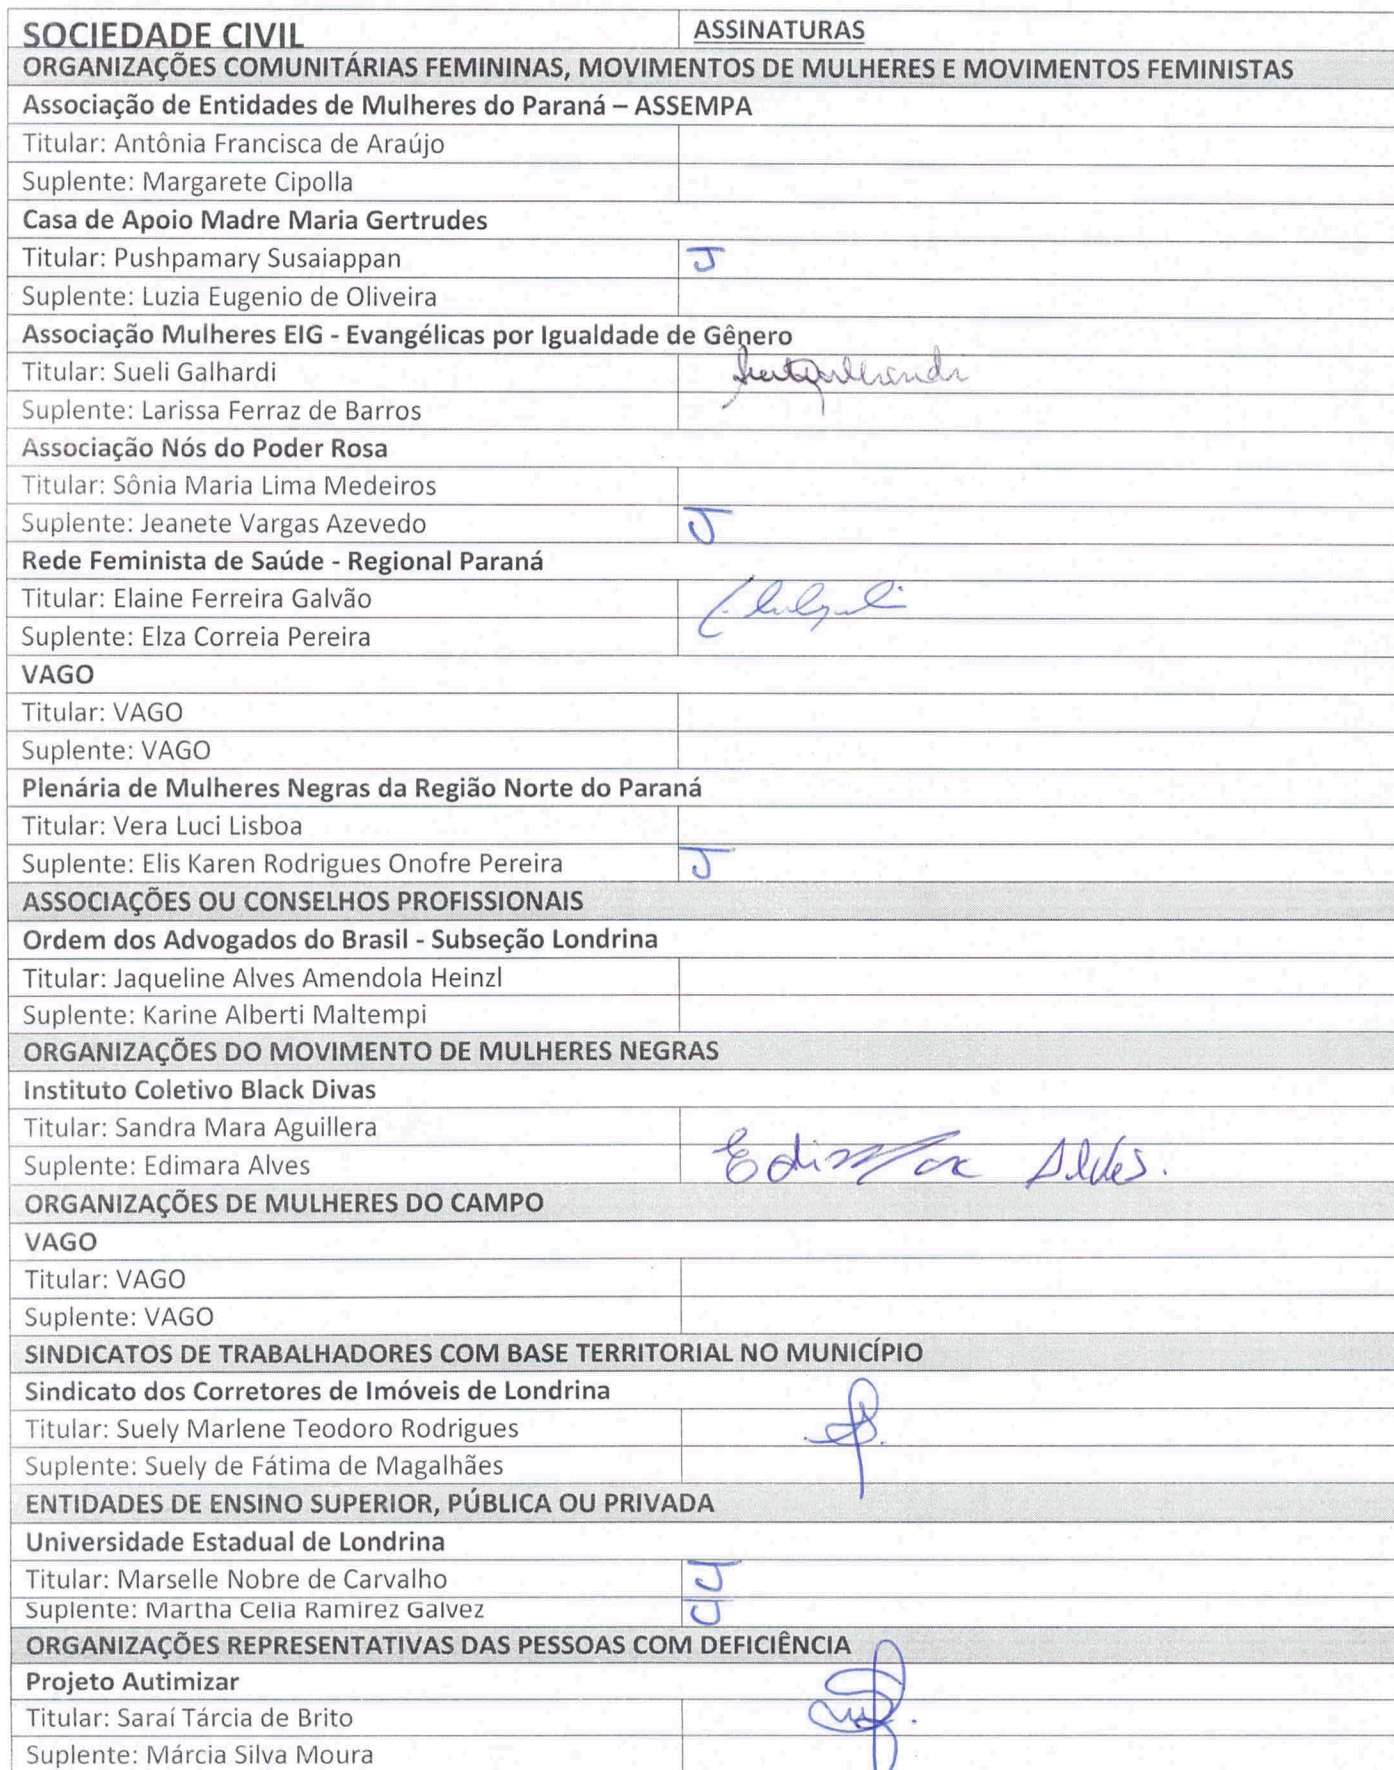 SOCIEDADE CIVIL ASSINATURAS
ORGANIZAÇÕES COMUNITÁRIAS FEMININAS, MOVIMENTOS DE MULHERES E MOVIMENTOS FEMINISTAS
Associação de Entidades de Mulheres do Paraná – ASSEMPA
Titular: Antônia Francisca de Araújo
Suplente: Margarete Cipolla
Casa de Apoio Madre Maria Gertrudes
Titular: Pushpamary Susaiappan J
Suplente: Luzia Eugenio de Oliveira
Associação Mulheres EIG - Evangélicas por Igualdade de Gênero
Titular: Sueli Galhardi
Suplente: Larissa Ferraz de Barros
Associação Nós do Poder Rosa
Titular: Sônia Maria Lima Medeiros
Suplente: Jeanete Vargas Azevedo J
Rede Feminista de Saúde - Regional Paraná
Titular: Elaine Ferreira Galvão
Suplente: Elza Correia Pereira
VAGO
Titular: VAGO
Suplente: VAGO
Plenária de Mulheres Negras da Região Norte do Paraná
Titular: Vera Luci Lisboa
Suplente: Elis Karen Rodrigues Onofre Pereira J
ASSOCIAÇÕES OU CONSELHOS PROFISSIONAIS
Ordem dos Advogados do Brasil - Subseção Londrina
Titular: Jaqueline Alves Amendola Heinzl
Suplente: Karine Alberti Maltempi
ORGANIZAÇÕES DO MOVIMENTO DE MULHERES NEGRAS
Instituto Coletivo Black Divas
Titular: Sandra Mara Aguillera
Suplente: Edimara Alves Edimara Alves.
ORGANIZAÇÕES DE MULHERES DO CAMPO
VAGO
Titular: VAGO
Suplente: VAGO
SINDICATOS DE TRABALHADORES COM BASE TERRITORIAL NO MUNICÍPIO
Sindicato dos Corretores de Imóveis de Londrina
Titular: Suely Marlene Teodoro Rodrigues
Suplente: Suely de Fátima de Magalhães
ENTIDADES DE ENSINO SUPERIOR, PÚBLICA OU PRIVADA
Universidade Estadual de Londrina
Titular: Marselle Nobre de Carvalho J
Suplente: Martha Celia Ramirez Galvez J
ORGANIZAÇÕES REPRESENTATIVAS DAS PESSOAS COM DEFICIÊNCIA
Projeto Autimizar
Titular: Saraí Tárcia de Brito
Suplente: Márcia Silva Moura